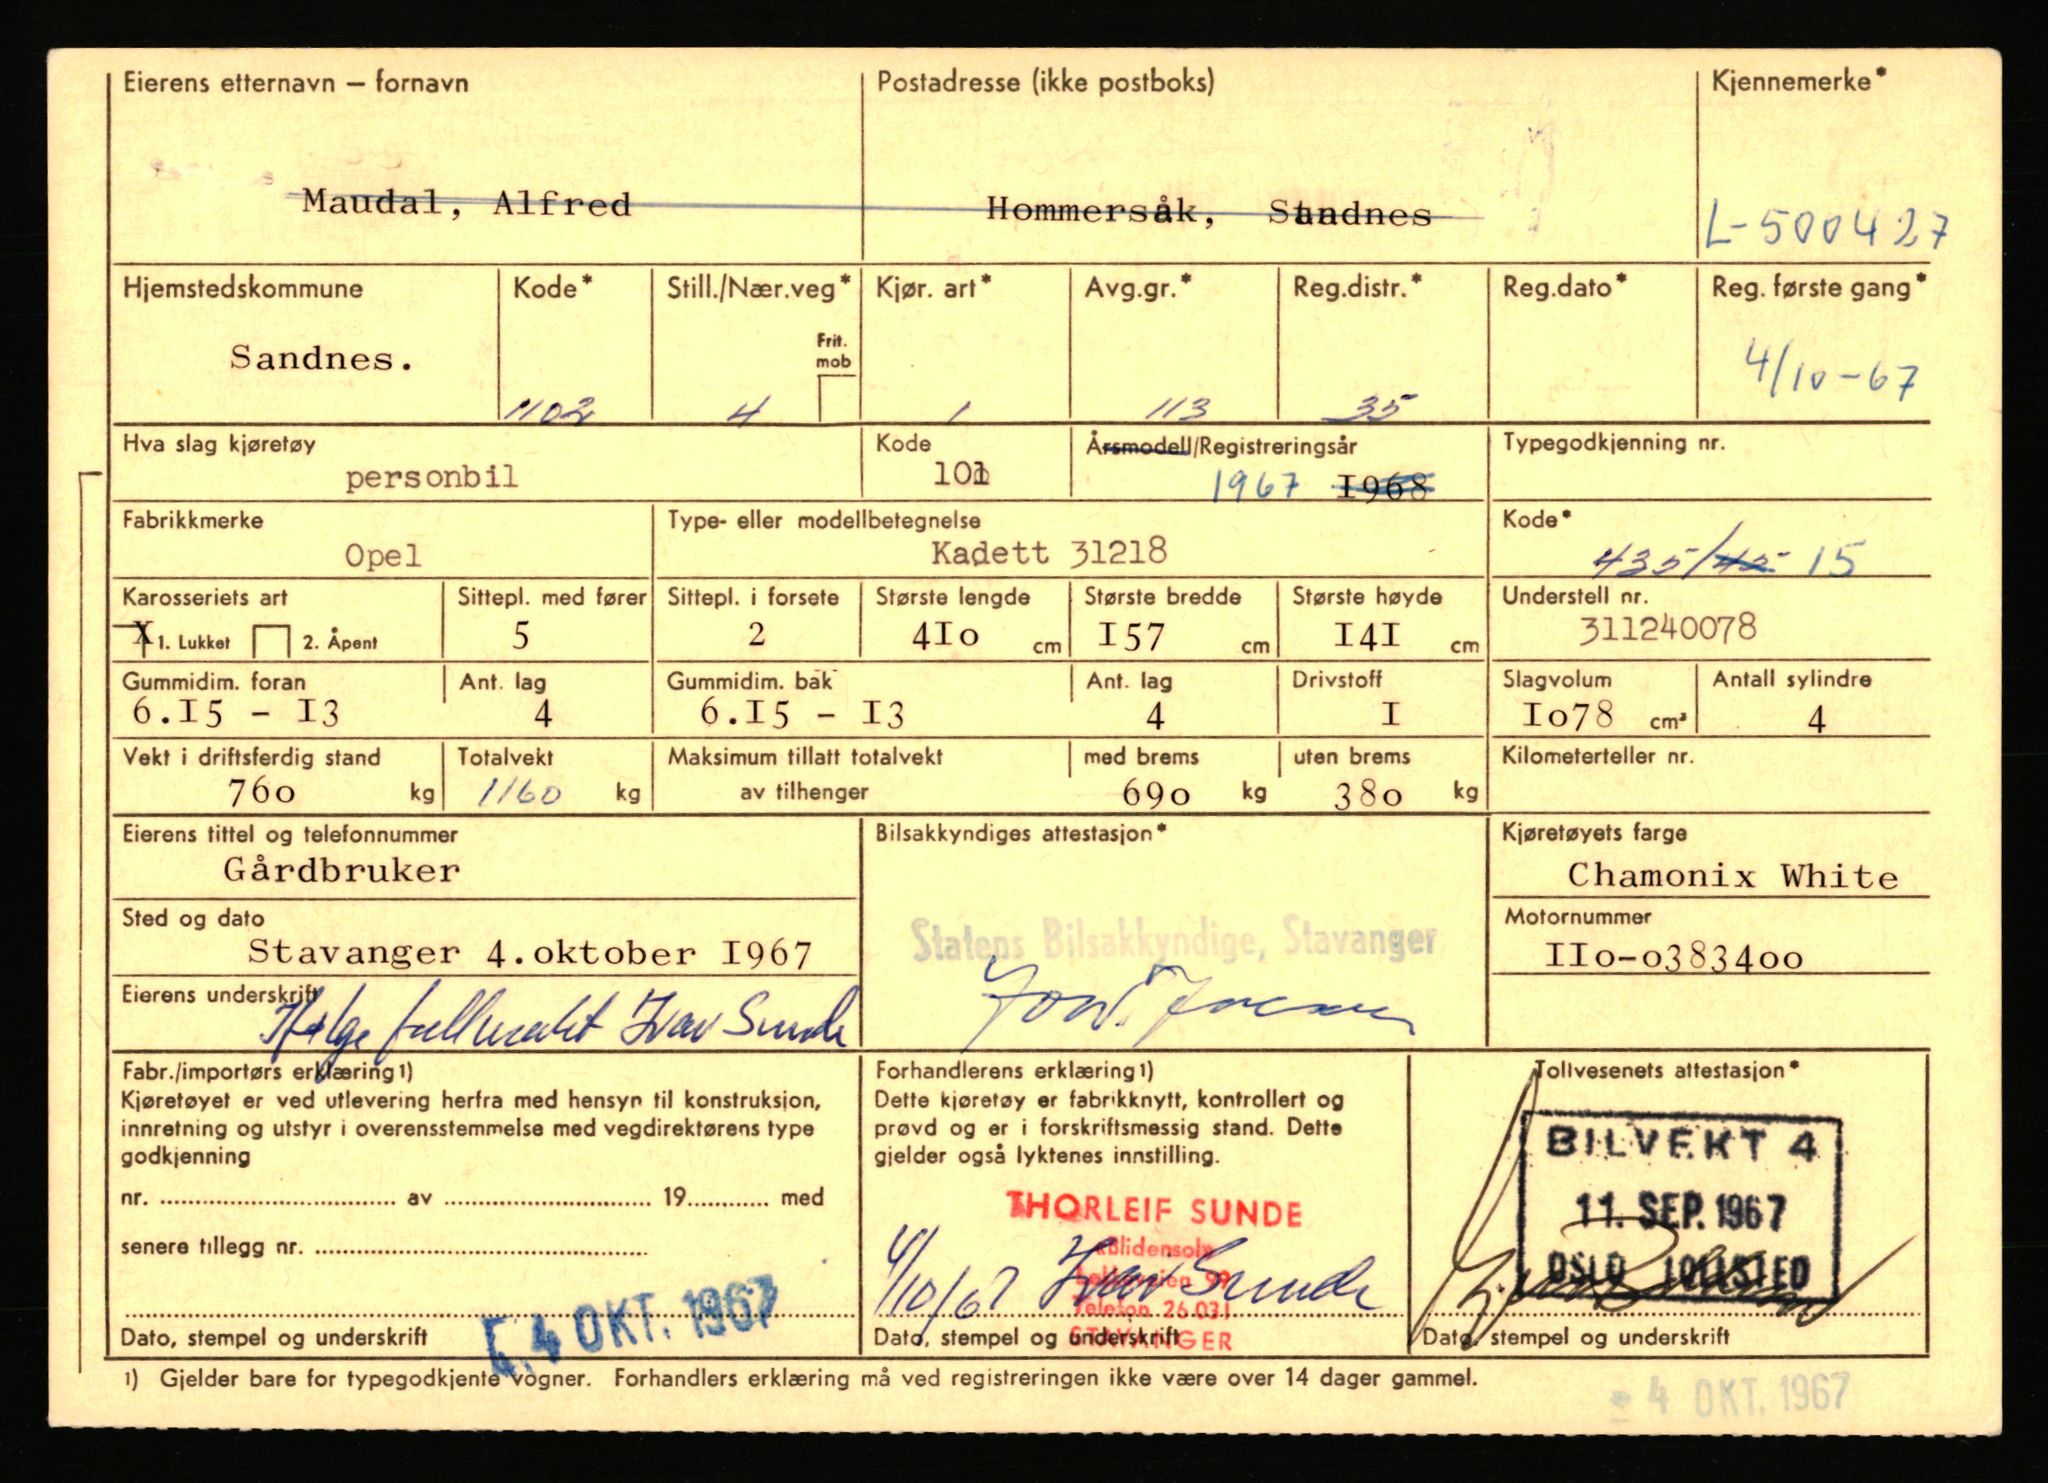 Eierens etternavn — fornavn Postadresse (ikke postboks) Kjennemerke*
Maudal, Alfred Hommersåk, Sandnes L-500427
Hjemstedskommune Kode* Still./Nær.veg* Kjør. art* Avg.gr.* Reg.distr.* Reg.dato* Reg. første gang*
Frit.
mob
Sandnes. 4/10-67
1102 4 1 113 35
Hva slag kjøretøy Kode Årsmodell/Registreringsår Typegodkjenning nr.
personbil 101 1967 1968
Fabrikkmerke Type- eller modellbetegnelse Kode*
Opel Kadett 31218 435/45 15
Karosseriets art Sittepl. med fører Sittepl. i forsete Største lengde Største bredde Største høyde Understell nr.
X 1. Lukket 2. Åpent 5 2 410 cm 157 cm 141 cm 311240078
Gummidim. foran Ant. lag Gummidim. bak Ant. lag Drivstoff Slagvolum Antall sylindre
6.I5 - I3 4 6.I5 - I3 4 I Io78 cm³ 4
Vekt i driftsferdig stand Totalvekt Maksimum tillatt totalvekt med brems uten brems Kilometerteller nr.
760 kg 1160 kg av tilhenger 690 kg 380 kg
Eierens tittel og telefonnummer Bilsakkyndiges attestasjon* Kjøretøyets farge
Gårdbruker Chamonix White
Sted og dato Motornummer
Stavanger 4.oktober I967 Statens Bilsakkyndige, Stavanger IIo-o3834oo
Eierens underskrift
Helge fullmakt Ivar Sunde
Fabr./importørs erklæring1) Forhandlerens erklæring1) Tollvesenets attestasjon*
Kjøretøyet er ved utlevering herfra med hensyn til konstruksjon, Dette kjøretøy er fabrikknytt, kontrollert og
innretning og utstyr i overensstemmelse med vegdirektørens type prøvd og er i forskriftsmessig stand. Dette BILVEKT 4
godkjenning gjelder også lyktenes innstilling.
nr. av 19 med THORLEIF SUNDE 11. SEP. 1967
senere tillegg nr. OSLO TOLLSTED
4/10/67 Ivar Sunde
Telefon 26 031
- 4 OKT. 1967
Dato, stempel og underskrift Dato, stempel og underskrift STAVANGER Dato, stempel og underskrift
1) Gjelder bare for typegodkjente vogner. Forhandlers erklæring må ved registreringen ikke være over 14 dager gammel.
- 4 OKT. 1967